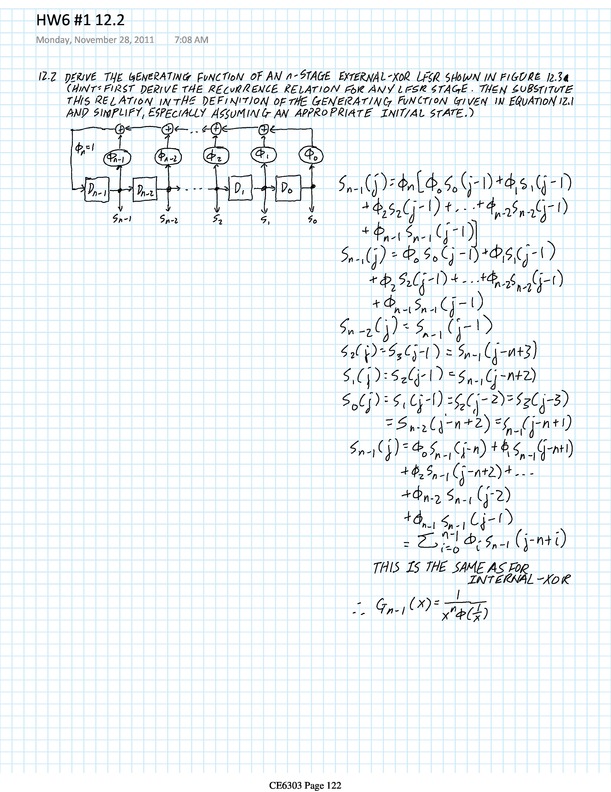 HW6 #1 12.2
Monday, November 28, 2011 7:08 AM
12.2 DERIVE THE GENERATING FUNCTION OF AN n-STAGE EXTERNAL-XOR LFSR SHOWN IN FIGURE 12.3a
(HINT: FIRST DERIVE THE RECURRENCE RELATION FOR ANY LFSR STAGE. THEN SUBSTITUTE
THIS RELATION IN THE DEFINITION OF THE GENERATING FUNCTION GIVEN IN EQUATION 12.1
AND SIMPLIFY, ESPECIALLY ASSUMING AN APPROPRIATE INITIAL STATE.)
+ + + +
Φn=1 Φn-1 Φn-2 Φ2 Φ1 Φ0
Dn-1 Dn-2 ... D1 D0
Sn-1 Sn-2 S2 S1 S0
Sn-1(j)=Φn[Φ0S0(j-1)+Φ1S1(j-1)
+Φ2S2(j-1)+...+Φn-2Sn-2(j-1)
+Φn-1Sn-1(j-1)]
Sn-1(j)=Φ0S0(j-1)+Φ1S1(j-1)
+Φ2S2(j-1)+...+Φn-2Sn-2(j-1)
+Φn-1Sn-1(j-1)
Sn-2(j)=Sn-1(j-1)
S2(j)=S3(j-1)=Sn-1(j-n+3)
S1(j)=S2(j-1)=Sn-1(j-n+2)
S0(j)=S1(j-1)=S2(j-2)=S3(j-3)
=Sn-2(j-n+2)=Sn-1(j-n+1)
Sn-1(j)=Φ0Sn-1(j-n)+Φ1Sn-1(j-n+1)
+Φ2Sn-1(j-n+2)+...
+Φn-2Sn-1(j-2)
+Φn-1Sn-1(j-1)
=Σ i=0 n-1 ΦiSn-1(j-n+i)
THIS IS THE SAME AS FOR
INTERNAL-XOR
∴ Gn-1(x)=1/(x^nΦ(1/x))
CE6303 Page 122